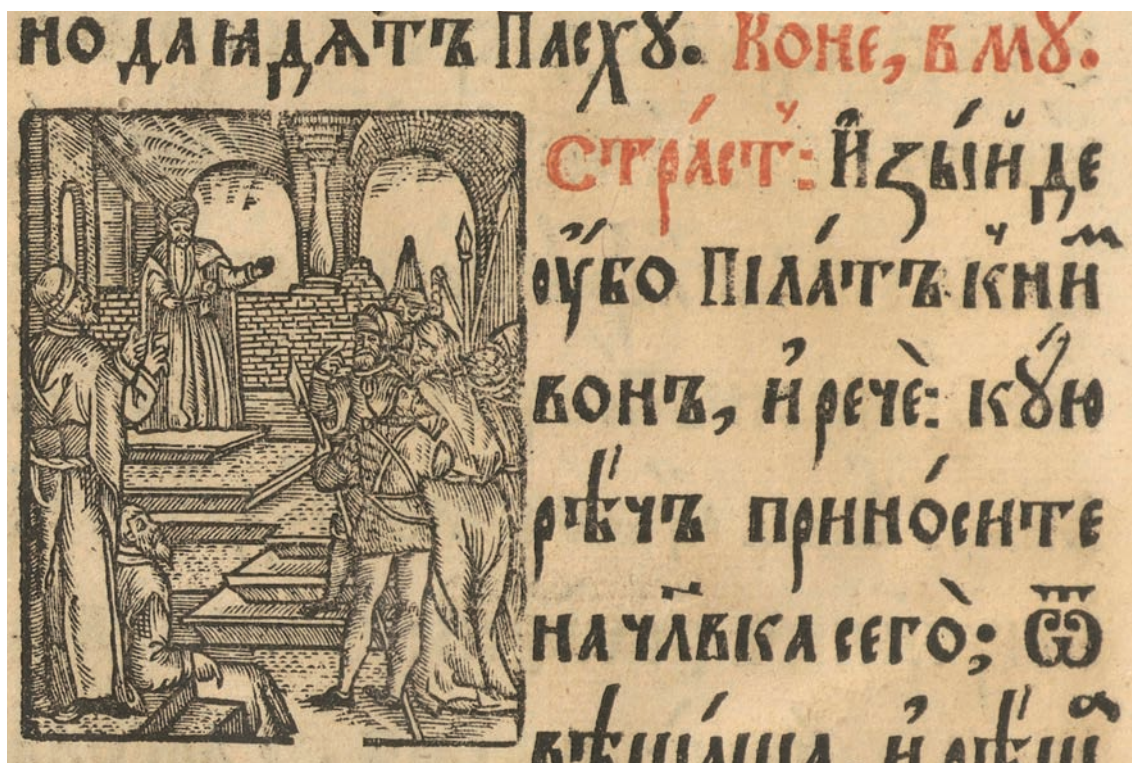 но да ꙗдѧтъ Пасхꙋ. Коне, в мꙋ.
Стра́ст: И҆зы́йде
ᲂу҆́бо Піла́тъ к ни́м
вонъ, и҆ речѐ: кꙋ́ю
рѣ́чъ прино́сите
на чл҃вка сего̀; Ѿ
вѣща́ша и҆ рѣ́ша